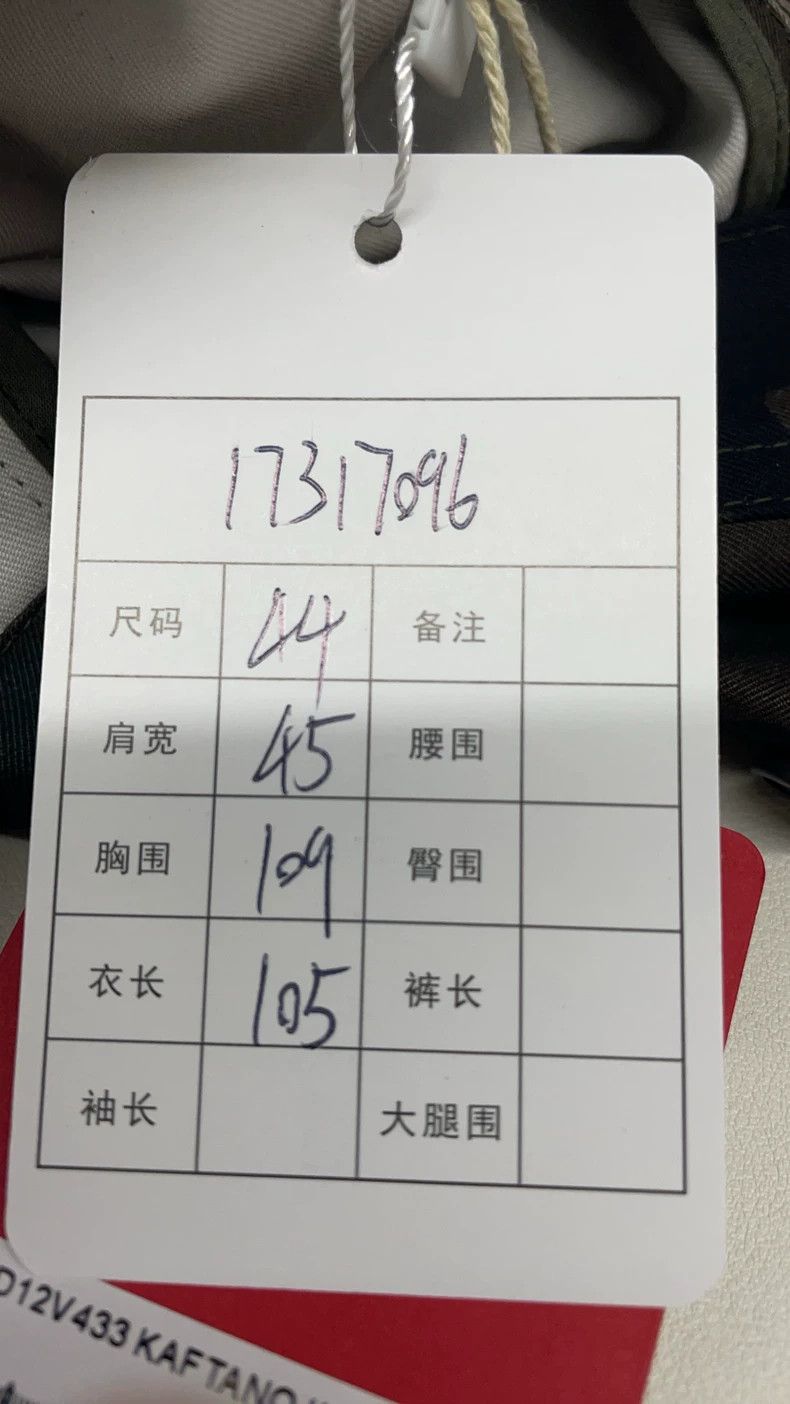 17317096
尺码 44 备注
肩宽 45 腰围
胸围 109 臀围
衣长 105 裤长
袖长 大腿围
D12V433 KAFTANO